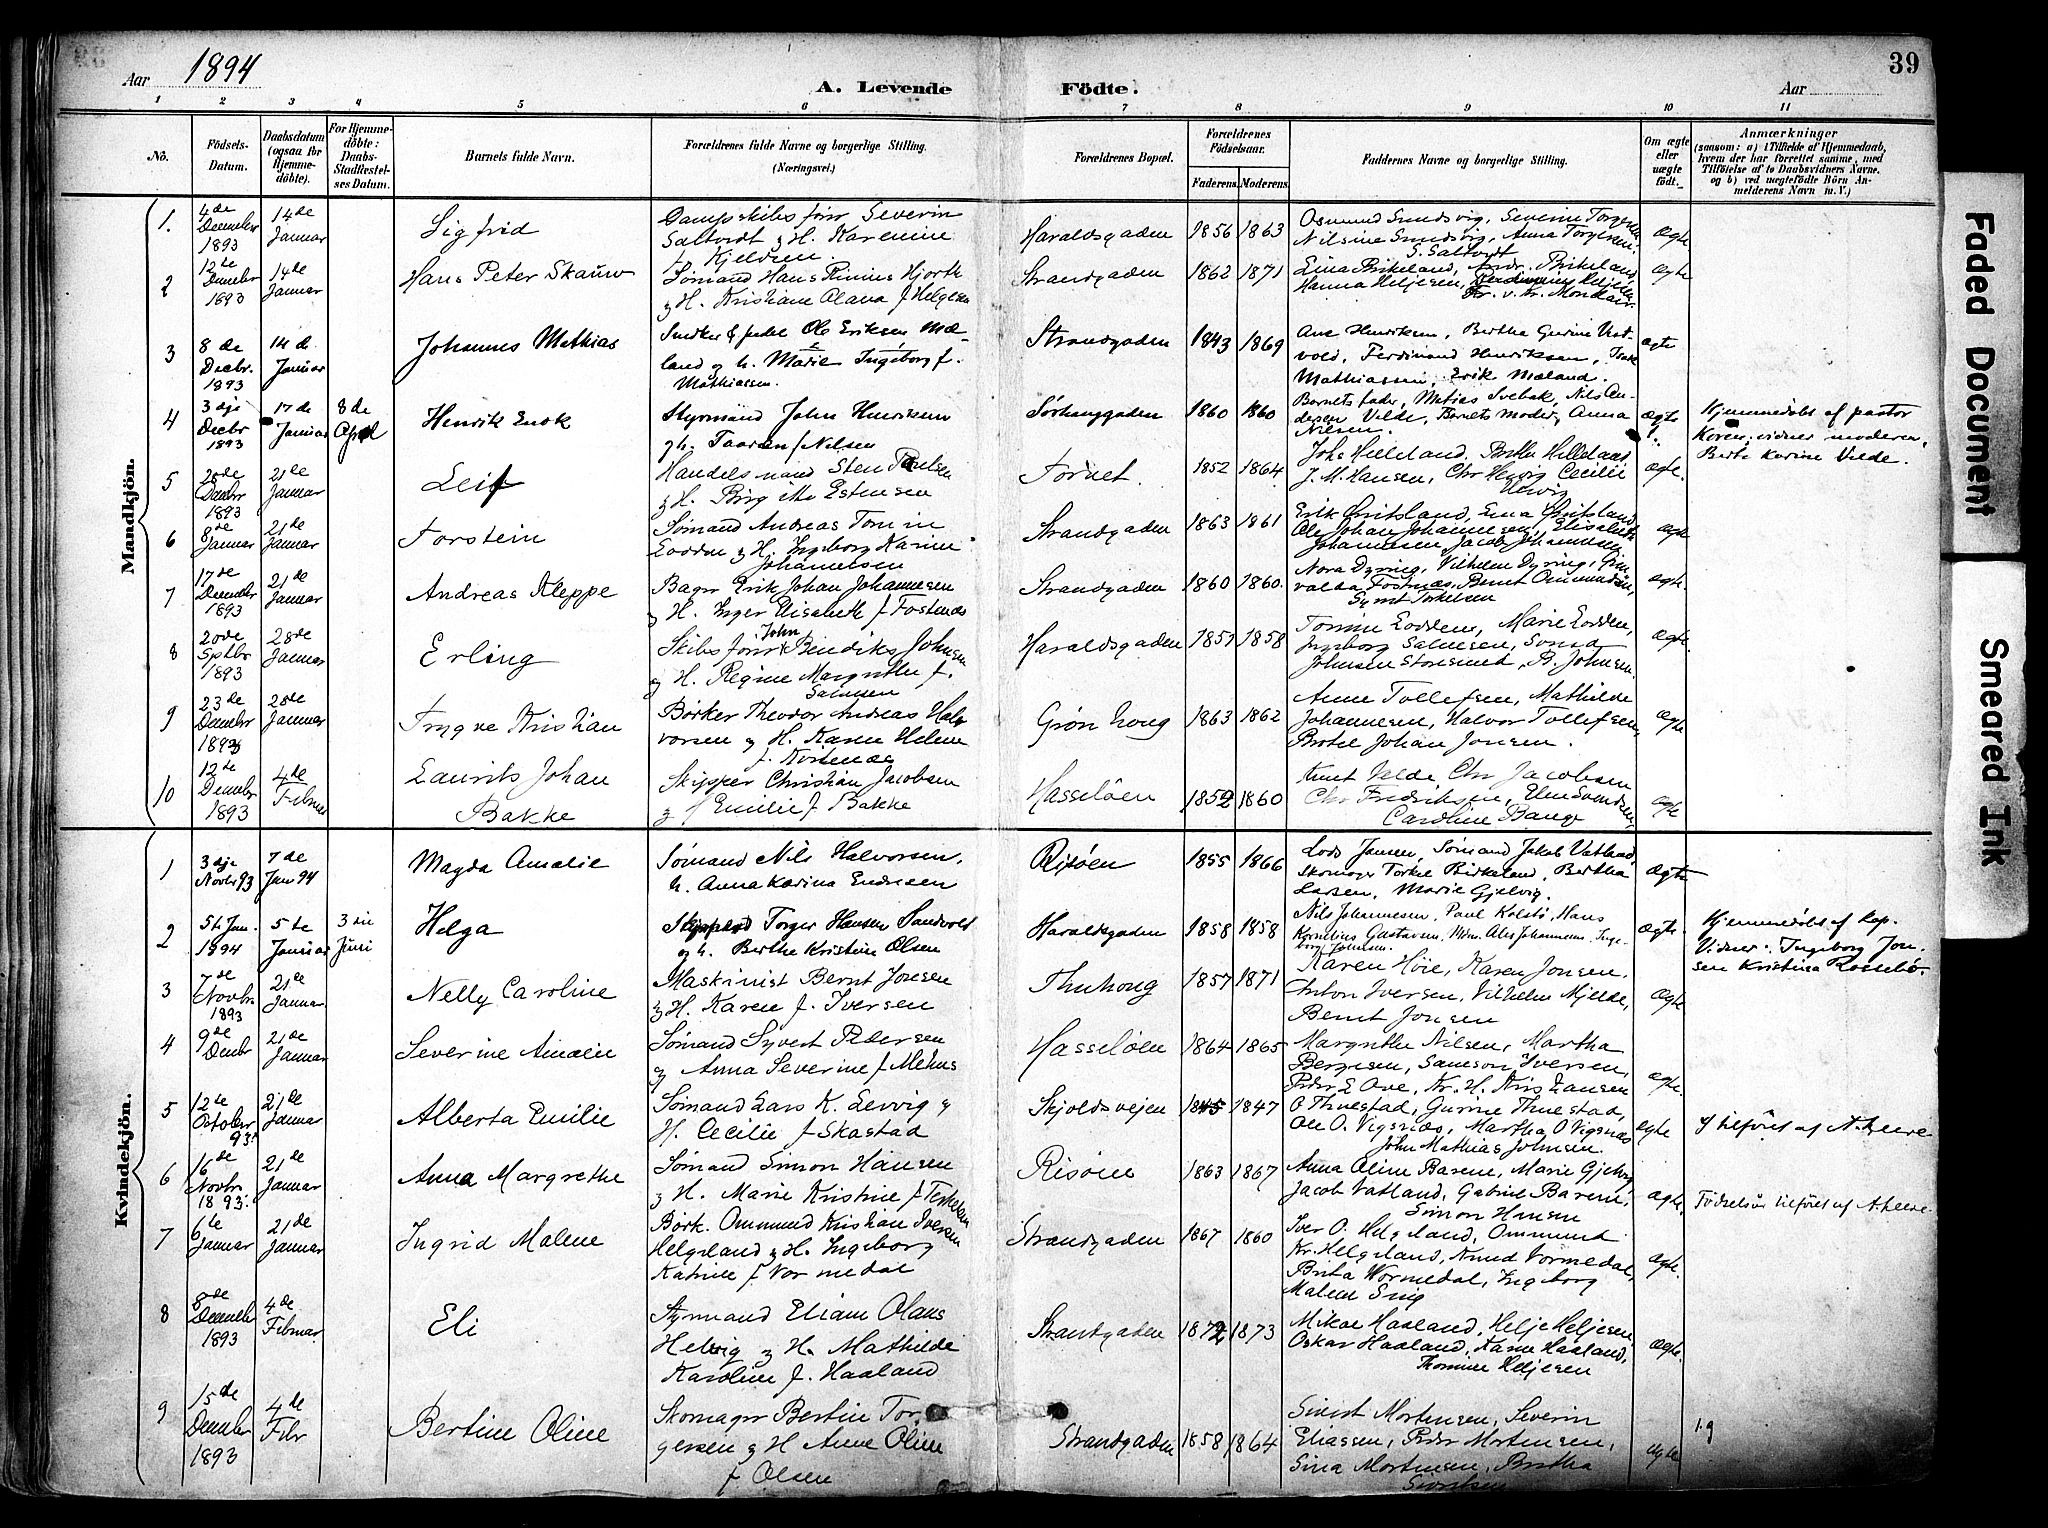 Aar 1894
A. Levende Födte.
39
Aar
1 2 3 4 5 6 7 8 9 10 11
No.
Födsels-Datum.
Daabsdatum (ogsaa for Hjemme-döbte).
For Hjemme-döbte: Daabs-Stadfæstel-ses Datum.
Barnets fulde Navn.
Forældrenes fulde Navne og borgerlige Stilling.
(Næringsvei.)
Forældrenes Bopæl.
Forældrenes Födselsaar.
Faderens. Moderens.
Faddernes Navne og borgerlige Stilling.
Om ægte eller uægte födt.
Anmærkninger
(saasom: a) i Tilfælde af Hjemmedaab,
hvem der har forrettet samme, med
Tilföielse af to Daabsvidners Navne,
og b) ved uægtefödte Börn An-
melderens Navn m. V.)
Mandkjön.
1.
4de December 1893
14de Januar
Sigfrid
Dampskibsförer Severin
Saltvedt og H. Karenine
f Kjeldsen.
Haraldsgaden
1856 1863
Osmund Sundsvig, Severine Torgersen
Nilsine Sundsvig, Anna Torgersen.
S. Saltvedt
ægte
2
12te December 1893
14de Januar
Hans Peter Skauw
Sömand Hans Hjorth
og H. Kristiane Olava f Helgesen
Strandgaden
1862 1871
Lina Birkeland, Andr. Birkeland,
Hanna Heljesen,
ægte
3
8de Decbr. 1893
14de Januar
Johannes Mathias
Snedker Ole Eriksen Mæ-
land og h. Marie Ingeborg f.
Mathiassen.
Strandgaden
1843 1869
Ane Henriksen, Bertha Gurine Vest-
vold, Ferdinand Henriksen, Isak
Mathiassen, Erik Mæland.
ægte
4
3dje Decbr 1893
17de Januar
8de April
Henrik Enok
Styrmand John Henriksen
og h. Taaren f Nilsen
Sörhauggaden
1860 1860
Barnets fader, Matias Svebak, Nils An-
dersen Velde, Barnets moder, Anna
Nilsen.
ægte
Hjemmedöbt af pastor
Koren; vidner moderen,
Berte Karine Velde.
5
20de Decbr 1893
21de Januar
Leif
Handelsmand Sten Paulsen
og H. Birgitte Estensen
Torvet.
1852 1864
Johs Helleland, Bertha Helleland
J. M. Hansen, Chr Hervig Cecilie
Hervig
ægte.
6
8de Januar
21de Januar
Torstein
Sömand Andreas Tomin
Lodden og H. Ingeborg Karine
Johannesen
Strandgaden
1863 1861
Ole Johan Johannesen, Elisabeth
Johannesen Jacob Johannesen
ægte
7
17de December 1893
21de Januar
Andreas Kleppe
Bager Erik Johan Johannesen
og H. Inger Elisabeth f Fostenæs
Strandgaden
1860 1860.
Nora Dyring, Vilhelm Dyring,
Fostenæs, Bernt Ommundsen,
Syvert Torkelsen
ægte.
8
20de Sptbr 1893
28de Januar
Erling
Skibsförer John Bendiks Johnsen
og H. Regine Margrethe f.
Salvesen
Haraldsgaden
1857 1858
Tomine Lodden, Marie Lodden,
Ingeborg Salvesen,
Johnsen Storesund, B. Johnsen.
ægte.
9
23de December 1893
28de Januar
Tryggve Kristian
Börker Theodor Andreas Hal-
vorsen og H. Karen Helene
f.
Grönhoug
1863 1862
Anne Tollefsen, Mathilde
Johannesen, Halvor Tollefsen,
Bertel Johan Jonsen.
ægte
10
12te December 1893
4de Februar
Laurits Johan
Bakke
Skipper Christian Jacobsen
og Emilie f Bakke
Hasselöen
1852 1860
Knut Velde Chr Jacobsen
Chr Fredriksen, Elen Svendsen,
Caroline Bauge
ægte
Kvindekjön.
1
3dje Novbr 93
7de Jan 94
Magda Amalie
Sömand Nils Halvorsen,
h. Anna Karina Endresen
Risöen
1855 1866
Lods Jansen, Sömand Jakob Vatland,
Skomager Torkel Birkeland, Bertha
Larsen, Marie Gjelvig.
ægte
2
5te Jan. 1894
5te Januar
3die Juni
Helga
Torger Hansen Sandvold
og h. Berthe Kristine Olsen
Haraldsgaden
1858 1858
Nils Johannesen, Paul Kolstö, Hans
Kornelius Gustavsen, Mdm. Johannesen, Inge-
borg Johnsen.
ægte.
Hjemmedöbt af kap.
Vidner: Ingeborg Jon-
sen Kristina Rossebö.
3
7de Novbr. 1893
21de Januar
Nelly Caroline
Maskinist Bernt Jonsen
og H. Karen f. Iversen
Thuhoug
1857 1871
Karen Höie, Karen Jonsen,
Anton Iversen, Vilhelm Mjelde,
Bernt Jonsen
ægte
4
9de Decbr
21de Januar
Severine Amalie
Sömand Syvert Pedersen
og Anna Severine f Mehus
Hasselöen
1864 1865
Margrethe Nilsen, Martha
Bergesen, Samson Iversen,
Peder E Ove, Kr. H. Kristiansen
ægte.
5
12te October 93.
21de Januar
Alberta Emilie
Sömand Lars K. Lervig og
H. Cecilie f Skastad
Skjoldsvejen
1845 1847
O Thuestad, Gurine Thuestad,
Ole O. Vigsnæs, Martha O Vigsnæs
John Mathias Johnsen.
ægte
5 tilföiet af A. Leere
6
16de Novbr. 1893.
21de Januar
Anna Margrethe
Sömand Simon Hansen
og H. Marie Kristine f Terkelsen
Risöen
1863 1867
Anna Oline Barene, Marie Gjelvig
Jacob Vatland, Gabriel Barene,
Simon Hansen
ægte.
Födselsår tilföiet af A. Leere
7
6te Januar
21de Januar
Ingrid Malene
Börk. Ommund Kristian Iversen
Helgeland og H. Ingeborg
Katrine f Vormedal
Strandgaden
1867 1860
Iver O. Helgeland, Ommund
Kr. Helgeland, Knud Vormedal,
Brita Vormedal, Ingeborg
Malene Seig
ægte.
8
8de December 1893
4de Februar
Eli
Styrmand Eliam Olaus
Helvig og H. Mathilde
Karoline f. Haaland
Strandgaden
1872 1873
Mikal Haaland, Helje Heljesen
Oskar Haaland, Karen Haaland,
Thomine Heljesen
ægte.
9
15de December 1893
4de Febr
Bertine Oline
Skomager Bertin Tor-
gersen og H Anne Oline
f Olsen
Strandgaden
1858 1864
Sivert Mortensen, Severin
Eliassen, Peder Mortensen,
Sina Mortensen, Bertha
Sivertsen
ægte
1.9
Faded Document
Smeared Ink